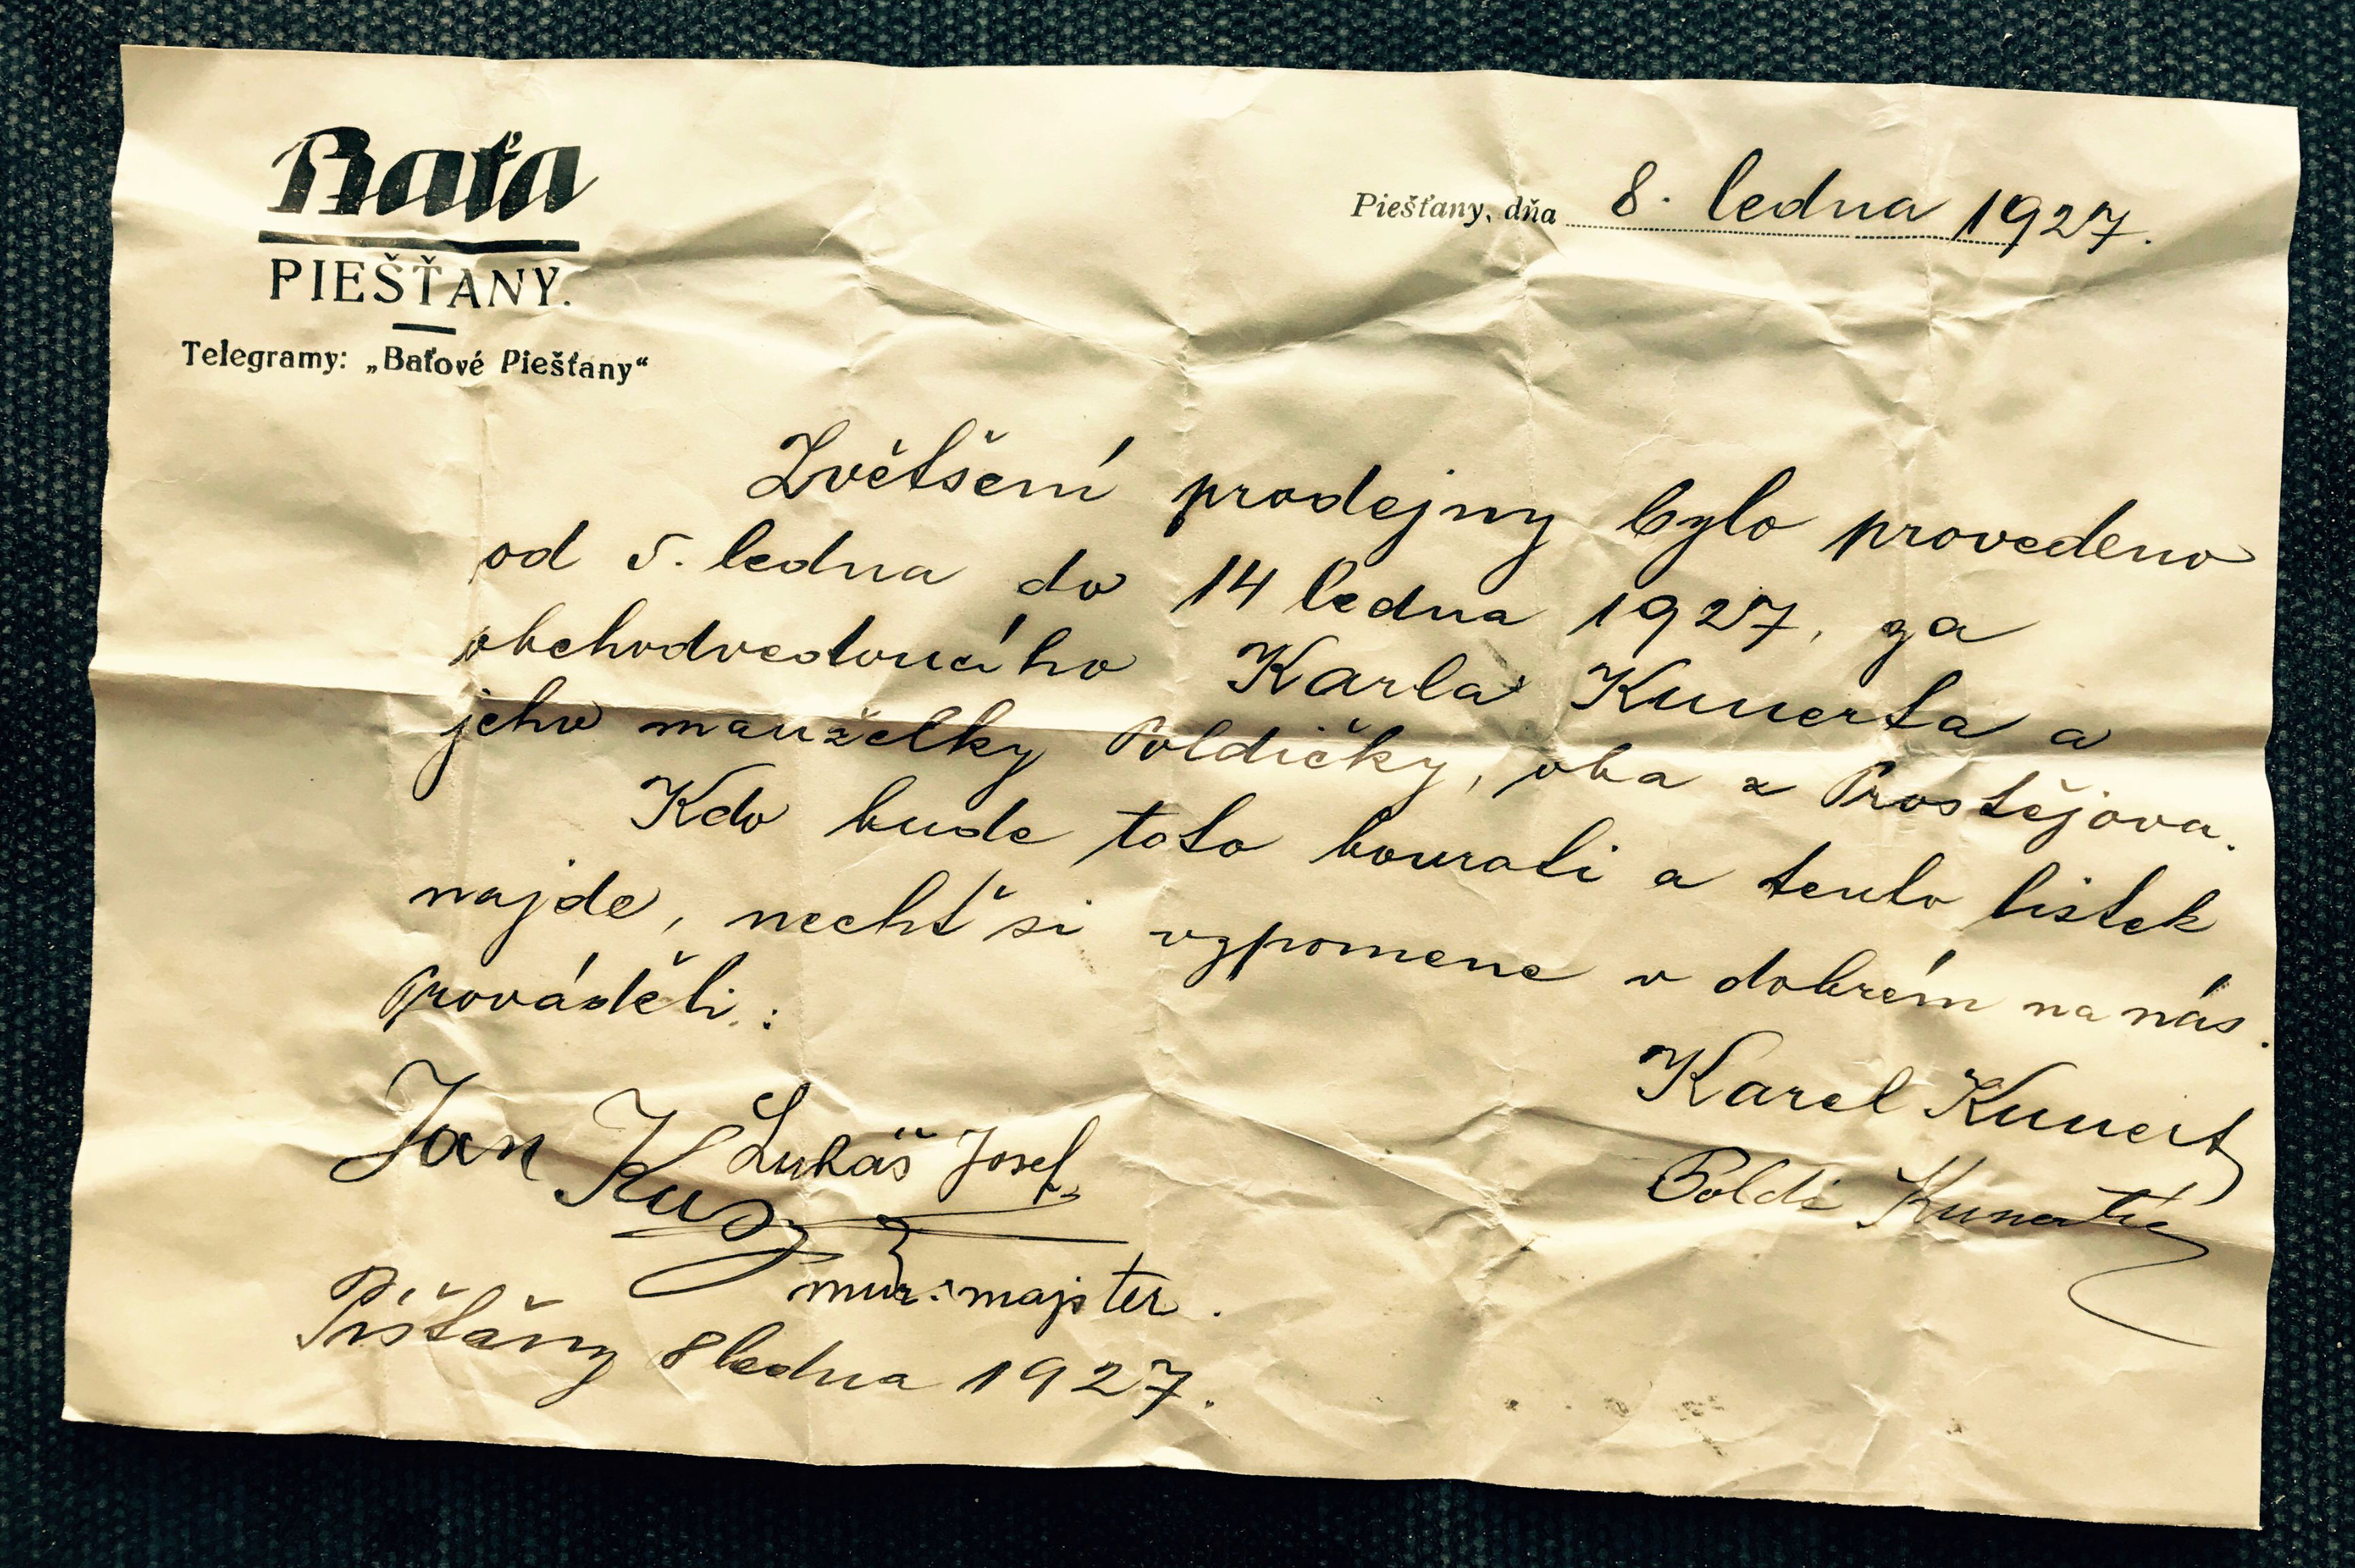 Baťa
PIEŠŤANY.
Telegramy: „Baťové Piešťany“
Piešťany, dňa 8. ledna 1927.
Zvětšení prodejny bylo provedeno
od 5. ledna do 14 ledna 1927, za
obchodvedoucího Karla Kunerta a
jeho manželky Poldičky, oba z Prostějova.
Kdo bude toto bourati a tento lístek
najde, nechť si vzpomene v dobrém na nás.
Prováděli:
Karel Kunert
Poldi Kunertů
Lukáš Josef
Jan
mur. majster.
Pišťany 8 ledna 1927.